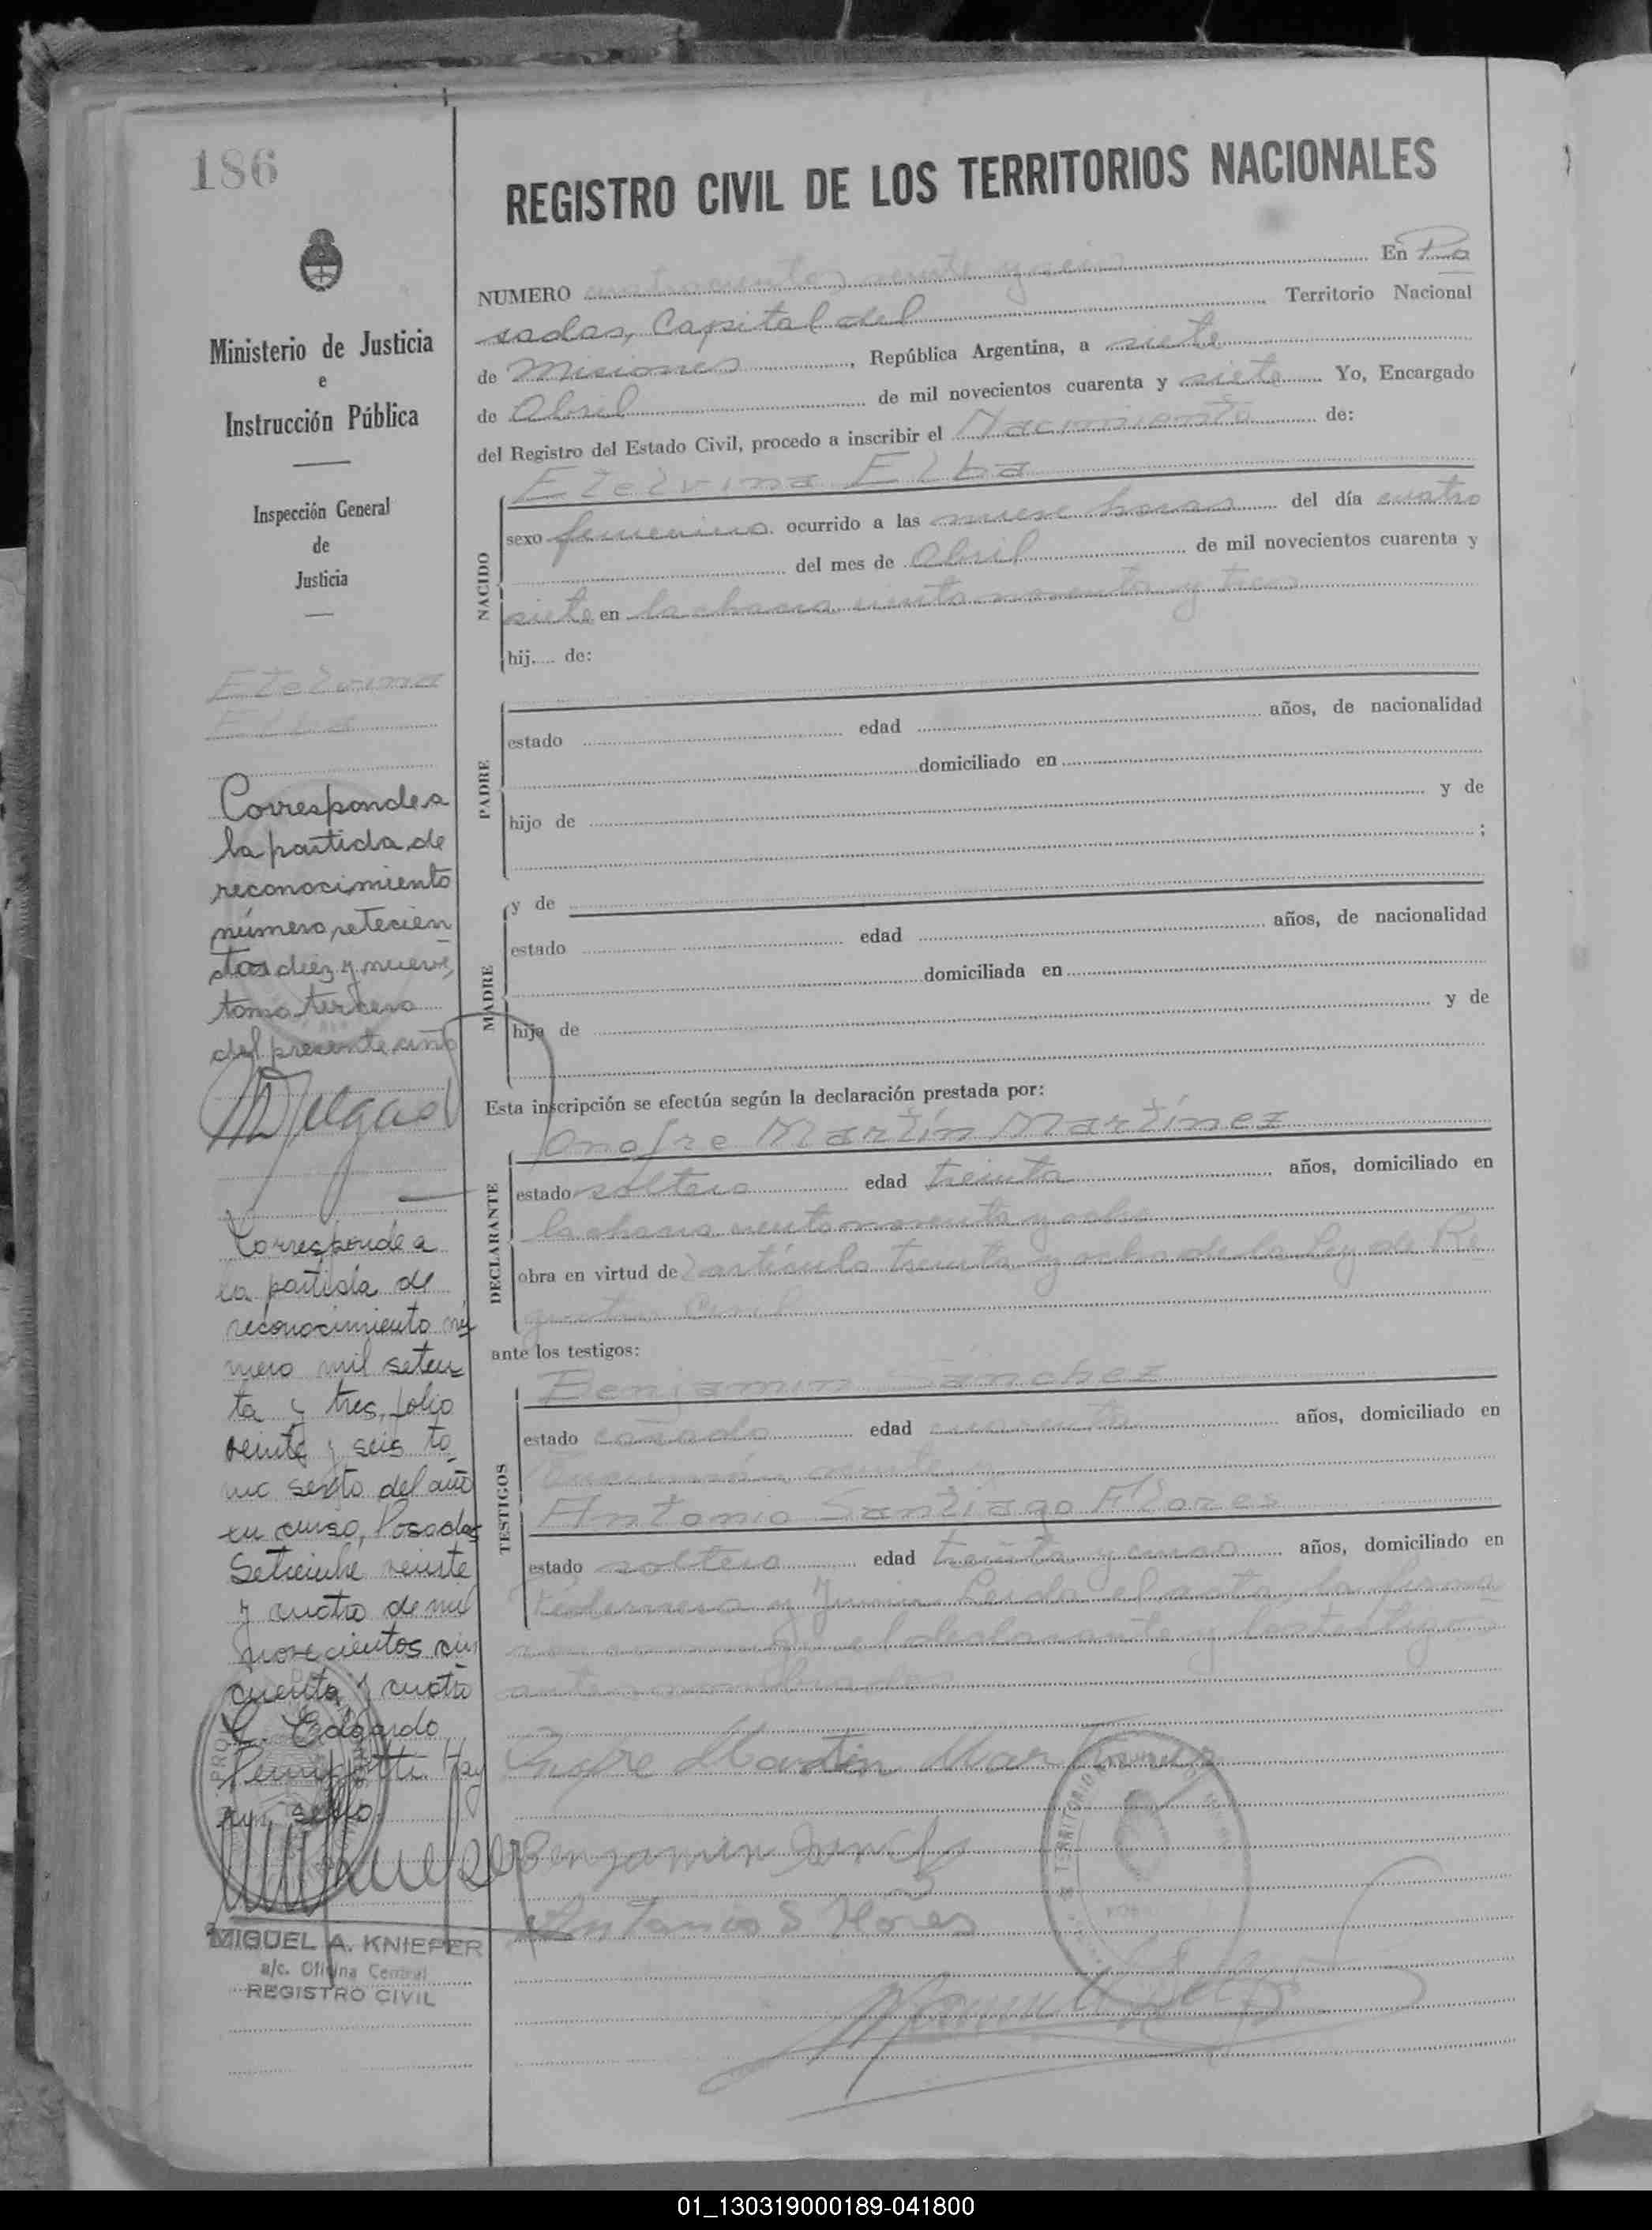 186
REGISTRO CIVIL DE LOS TERRITORIOS NACIONALES
Ministerio de Justicia
e
Instrucción Pública
Inspección General
de
Justicia
Etelvina
Elba
Corresponde a
la partida de
reconocimiento
número setecien
tos diez y nueve,
tomo tercero
del presente año
Corresponde a
la partida de
reconocimiento nú
mero mil seten
ta y tres, folio
veinte y seis to
mo sexto del año
en curso, Posadas
Setiembre veinte
y cuatro de mil
novecientos cin
cuenta y cuatro
Edgardo
Hay
un sello
MIGUEL A. KNIEPER
a/c. Oficina Central
REGISTRO CIVIL
NUMERO cuatrocientos veinte y seis En Po
sadas, Capital del Territorio Nacional
de Misiones, República Argentina, a siete
de Abril de mil novecientos cuarenta y siete Yo, Encargado
del Registro del Estado Civil, procedo a inscribir el Nacimiento de:
Etelvina Elba
NACIDO
sexo femenino ocurrido a las nueve horas del día cuatro
del mes de Abril de mil novecientos cuarenta y
siete en la chacra ciento noventa y tres
hij.... de:
PADRE
estado edad años, de nacionalidad
domiciliado en
hijo de y de
;
y de
MADRE
estado edad años, de nacionalidad
domiciliada en
hija de y de
Esta inscripción se efectúa según la declaración prestada por:
Onofre Martín Martínez
DECLARANTE
estado soltero edad treinta años, domiciliado en
la chacra ciento noventa y ocho
obra en virtud del artículo treinta y ocho de la Ley de Re
gistro Civil
ante los testigos:
Benjamin Sánchez
TESTIGOS
estado casado edad cuarenta años, domiciliado en
Tucumán veinte y
Antonio Santiago Flores
estado soltero edad treinta y cinco años, domiciliado en
y Junin. Leida el acta, la firma
ron conmigo el declarante y los testigos
antes nombrados
Onofre Martin Martinez
Benjamin Sanchez
Antonio S Flores
01_130319000189-041800